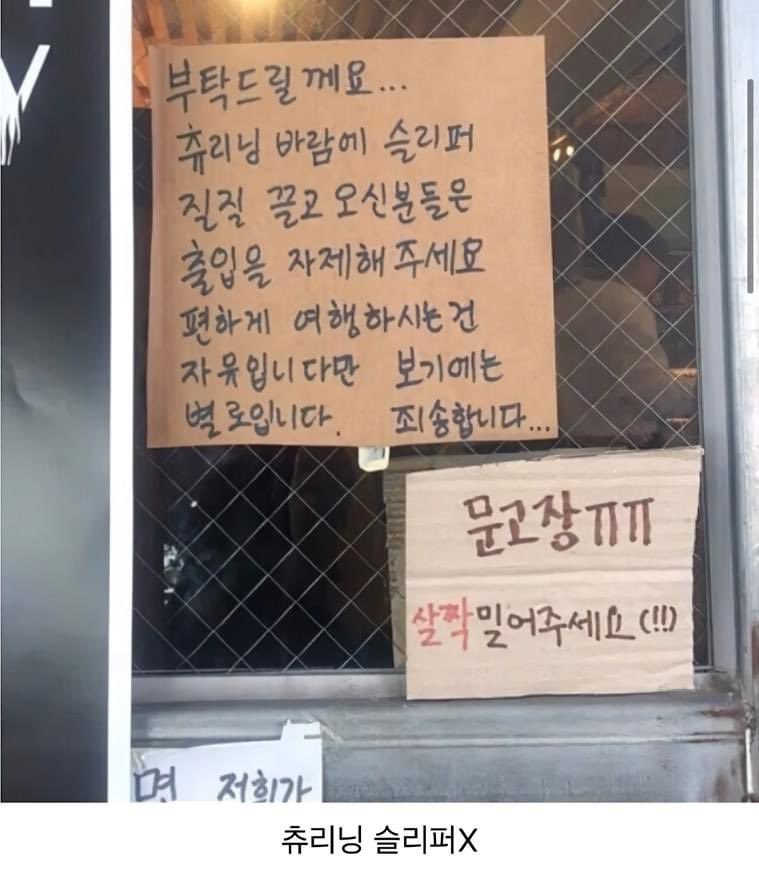 부탁드릴께요...
츄리닝 바람에 슬리퍼
질질 끌고 오신분들은
출입을 자제해 주세요
편하게 여행하시는건
자유입니다만 보기에는
별로입니다. 죄송합니다...
문고장ㅠㅠ
살짝밀어주세요(!!)
면 저희가
츄리닝 슬리퍼X